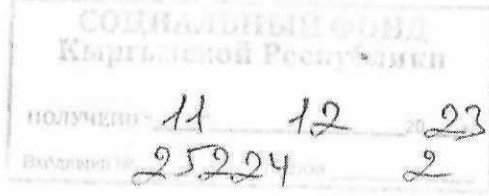 СОЦИАЛЬНЫЙ ФОНД
Кыргызской Республики
ПОЛУЧЕНО 11 12 20 23
Входящий № 25224 2